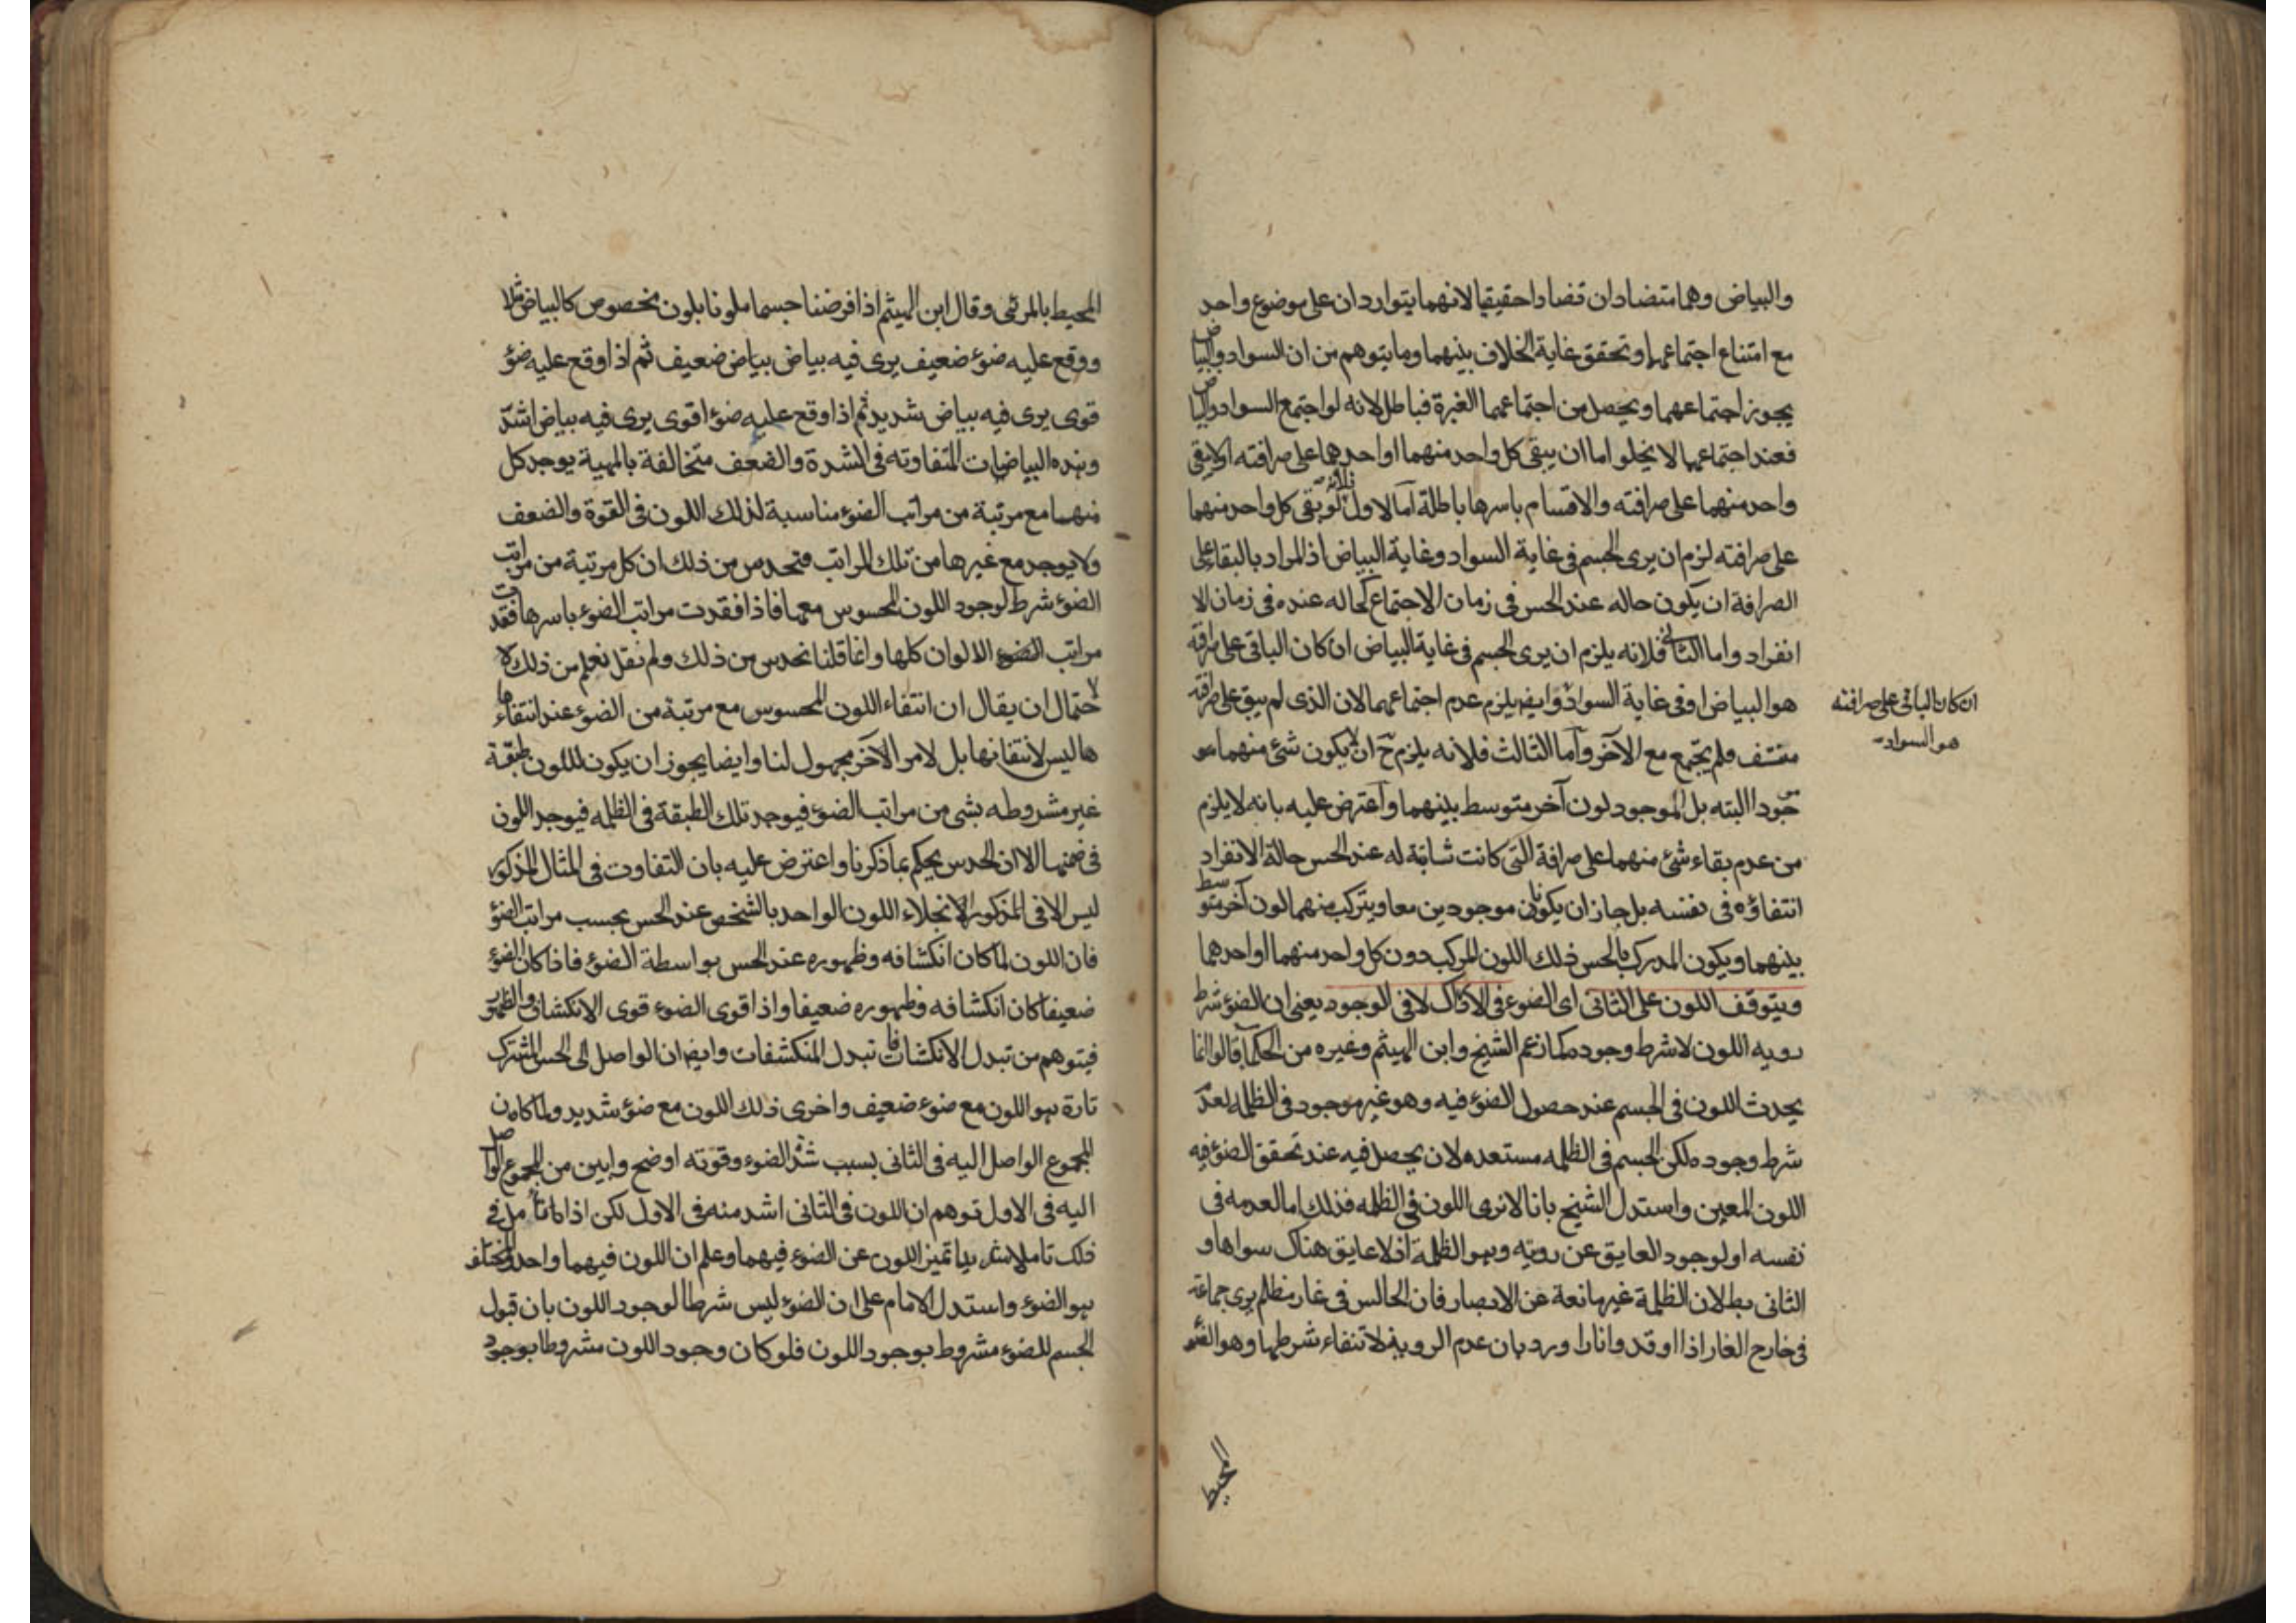 والبياض وهما متضادان تضادا حقيقيا لانهما يتواردان على موضوع واحد
مع امتناع اجتماعهما وتحقق غاية الخلاف بينهما وما يتوهم من ان السواد والبياض
يجوز اجتماعهما ويحصل من اجتماعهما الغبرة فباطل لانه لو اجتمع السواد والبياض
فعند اجتماعهما لا يخلو اما ان يبقى كل واحد منهما او احدهما على صرافته او لا يبقى
واحد منهما على صرافته والاقسام باسرها باطلة اما الاول فلانه لو بقى كل واحد منهما
على صرافته لزم ان يرى الجسم فى غاية السواد وغاية البياض اذ المراد بالبقاء على
الصرافة ان يكون حاله عند الحس فى زمان الاجتماع كحاله عنده فى زمان الا
انفراد واما الثانى فلانه يلزم ان يرى الجسم فى غاية البياض ان كان الباقى على صرافته
هو البياض او فى غاية السواد وايضا يلزم عدم اجتماعهما لان الذى لم يبق على صرافته
ان كان الباقى على صرافته
هو السواد
منتف فلم يجتمع مع الآخر واما الثالث فلانه يلزم ح ان لا يكون شئ منهما مو
جودا البته بل الموجود لون آخر متوسط بينهما واعترض عليه بانه لا يلزم
من عدم بقاء شئ منهما على صرافة التى كانت ثابتة له عند الحس حالة الانفراد
انتفاؤه فى نفسه بل جاز ان يكونا موجودين معا ويتركب منهما لون آخر متوسط
بينهما ويكون المدرك بالحس ذلك اللون المركب دون كل واحد منهما او احدهما
ويتوقف اللون على الثانى اى الضوء فى الادراك لا فى الوجود يعنى ان الضوء شرط
رويه اللون لا شرط وجوده كما زعم الشيخ وابن الهيثم وغيره من الحكماء قالوا انما
يحدث اللون فى الجسم عند حصول الضوء فيه وهو غير موجود فى الظلمه لعدم
شرط وجوده لكن الجسم فى الظلمه مستعده لان يحصل فيه عند تحقق الضوء فيه
اللون المعين واستدل الشيخ بانا لا نرى اللون فى الظلمه فذلك اما لعدمه فى
نفسه او لوجود العايق عن رويته وهو الظلمة اذ لا عايق هناك سواها و
الثانى بط لان الظلمة غير مانعة عن الابصار فان الجالس فى غار مظلم يرى جماعة
فى خارج الغار اذا اوقدوا نارا ورد بان عدم الروية لانتفاء شرطها وهو الضوء
المحيط
المحيط بالمرئى وقال ابن الهيثم اذا فرضنا جسما ملونا بلون مخصوص كالبياض مثلا
ووقع عليه ضوء ضعيف يرى فيه بياض بياض ضعيف ثم اذا وقع عليه ضوء
قوى يرى فيه بياض شديد ثم اذا وقع عليه ضوء اقوى يرى فيه بياض اشد
وهذه البياضات المتفاوته فى الشدة والضعف متخالفة بالمهية يوجد كل
منهما مع مرتبة من مراتب الضوء مناسبة لذلك اللون فى القوة والضعف
ولا يوجد مع غيرها من تلك المراتب فتحدس من ذلك ان كل مرتبة من مراتب
الضوء شرط لوجود اللون المحسوس معها فاذا فقدت مراتب الضوء باسرها فقدت
مراتب الضوء الالوان كلها وانما قلنا نحدس من ذلك ولم نقل نعلم من ذلك لا
حتمال ان يقال ان انتفاء اللون المحسوس مع مرتبة من الضوء عند انتفاء
ها ليس لانتفائها بل لامر الآخر مجهول لنا وايضا يجوز ان يكون للون طبقة
غير مشروطه بشى من مراتب الضوء فيوجد تلك الطبقة فى الظلمه فيوجد اللون
فى ضمنها الا ان الحدس يحكم بما ذكرنا واعترض عليه بان التفاوت فى المثال المذكور
ليس الا فى المذكور لانجلاء اللون الواحد بالشخص عند الحس بحسب مراتب الضوء
فان اللون لما كان انكشافه وظهوره عند الحس بواسطة الضوء فاذا كان الضوء
ضعيفا كان انكشافه وظهوره ضعيفا واذا قوى الضوء قوى الانكشاف والظهور
فيتوهم من تبدل الانكشافات تبدل المنكشفات وايضا ان الواصل الى الحس المشترك
تارة هو اللون مع ضوء ضعيف واخرى ذلك اللون مع ضوء شديد ولما كان
المجموع الواصل اليه فى الثانى بسبب شدة الضوء وقوته اوضح وابين من المجموع الواصل
اليه فى الاول توهم ان اللون فى الثانى اشد منه فى الاول لكن اذا تامل فى
ذلك تاملا شديدا تميز اللون عن الضوء فيهما وعلم ان اللون فيهما واحد والمختلف
هو الضوء واستدل الامام على ان الضوء ليس شرطا لوجود اللون بان قبول
الجسم للضوء مشروط بوجود اللون فلو كان وجود اللون مشروطا بوجود